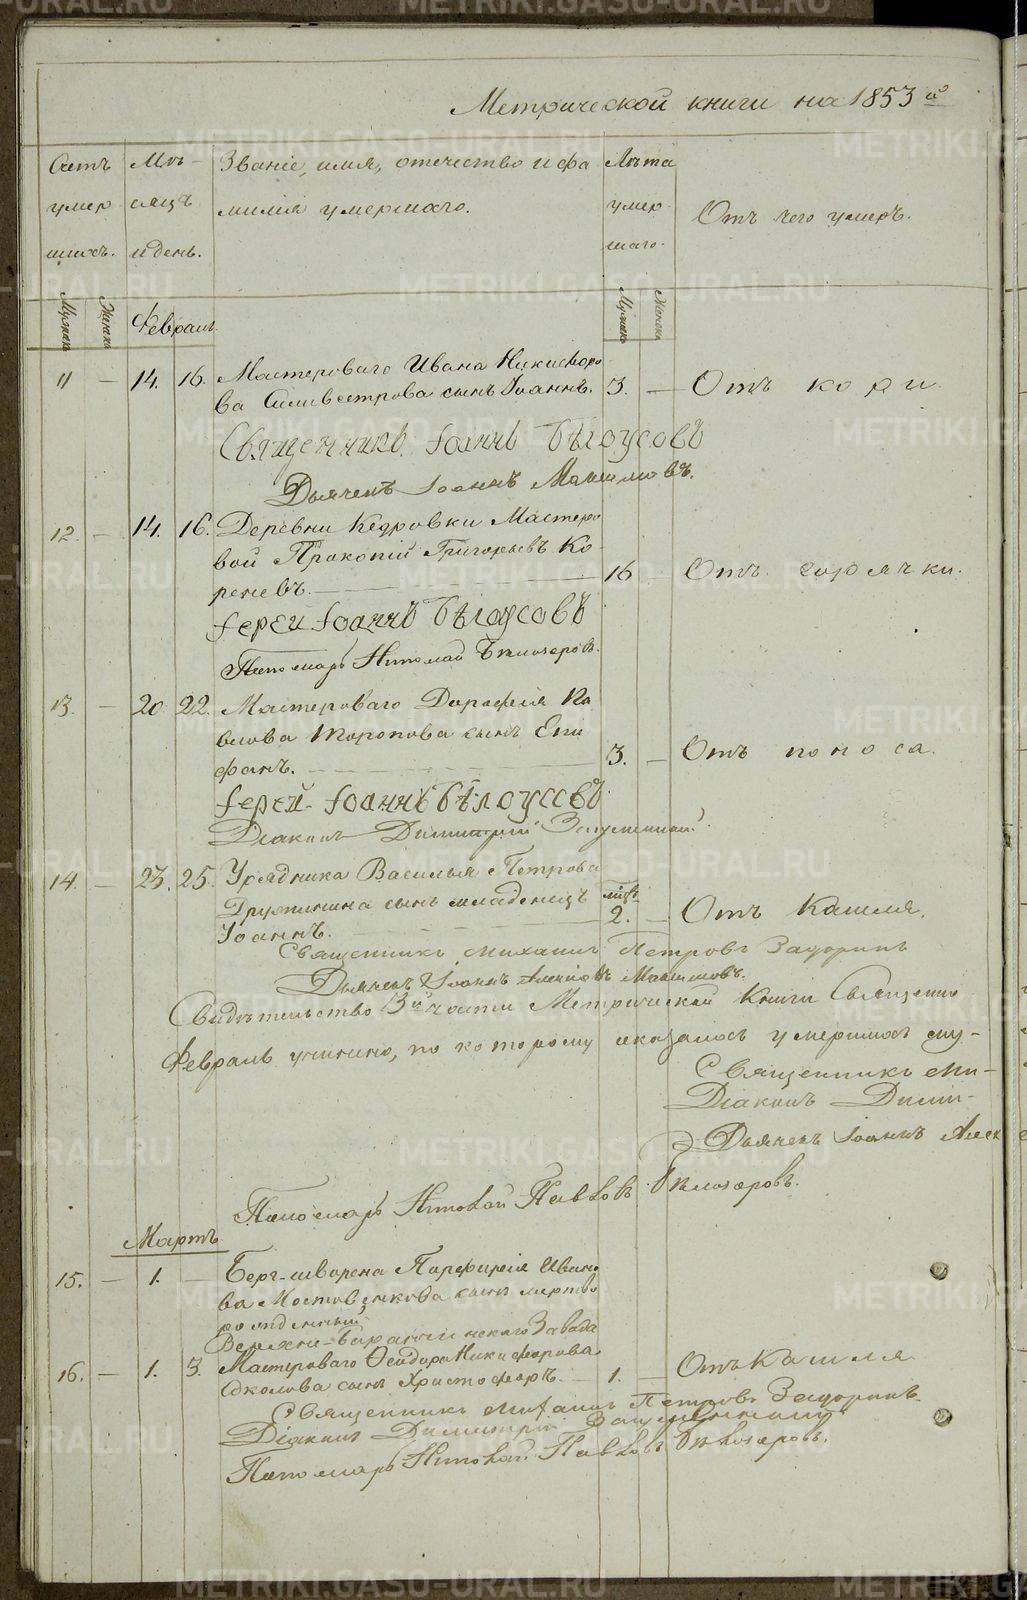 Метрической книги на 1853й
Счетъ умершихъ.
Мѣсяцъ и день.
Званіе, имя, отечество и фамилія умершаго.
Лѣта умершаго.
Отъ чего умеръ.
Мужска Женска Февраль Мужска Женска
11 — 14. 16. Мастероваго Ивана Никифоро
ва Силивестрова сынъ Іоаннъ. 3. — Отъ кори.
Священникъ Іоаннъ Бѣлоусовъ
Дьячекъ Іоаннъ
12. — 14. 16. Деревни Кедровки Мастеро
вой Прокопій Григорьевъ Ко
реневъ. 16 — Отъ горячки.
Іерей Іоаннъ Бѣлоусовъ
Пономарь Николай Бѣлозеровъ.
13. — 20. 22. Мастероваго Дорофея Па
влова Торопова сынъ Епи
фанъ. 3. — Отъ поноса.
Іерей Іоаннъ Бѣлоусовъ
Діаконъ Димитрій
14. — 23. 25. Урядника Василья Петрова
Дружинина сынъ младенецъ мѣс.
Іоаннъ. 2. — Отъ Кашля.
Священникъ Михаилъ Петровъ Задоринъ
Дьячекъ Іоаннъ
Свидѣтельство 3й части Метрической Книги Священно
Февраль учинено, по которому оказалось умершихъ му-
Священникъ Ми-
Діаконъ Дими-
Дьячекъ Іоаннъ Алек
Пономарь Николай Павловъ Бѣлозеровъ.
Мартъ
15. — 1. — Берг-шворена Порфирія Ивано
ва Мостовенкова сынъ мертво
рожденный
Верхне-Баранчинскаго Завода
16. — 1. 3. Мастероваго Ѳеодора Никифорова
Соколова сынъ Христофоръ. — 1. — Отъ Кашля
Священникъ Михаилъ Петровъ Задоринъ.
Діаконъ Димитрій
Пономарь Николай Павловъ Бѣлозеровъ.
METRIKI.GASO-URAL.RU